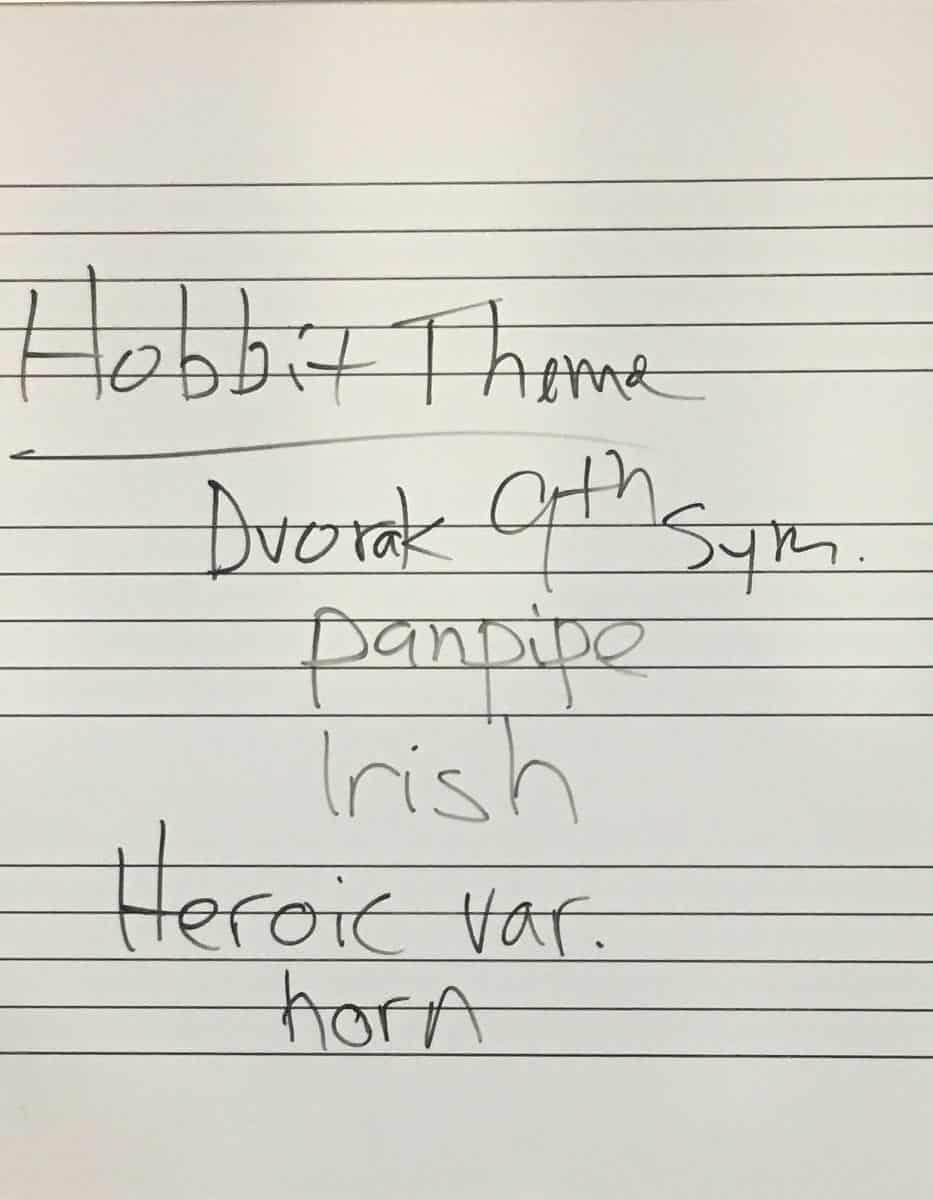 Hobbit Theme
Dvorak 9th Sym.
panpipe
Irish
Heroic var.
horn